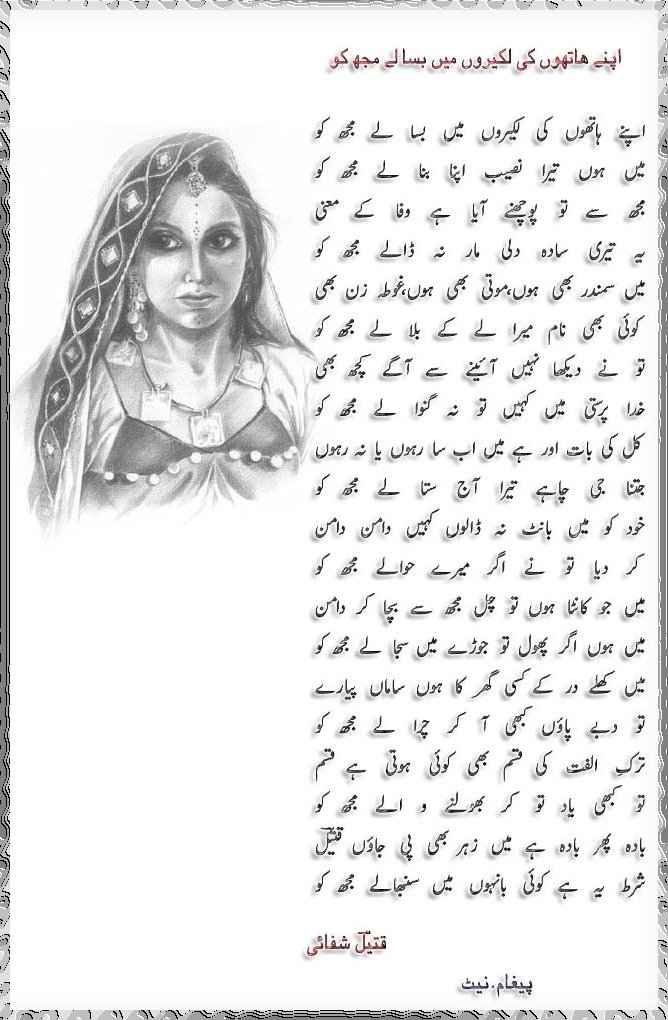 اپنے ھاتھوں کی لکیروں میں بسا لے مجھ کو
اپنے ہاتھوں کی لکیروں میں بسا لے مجھ کو
میں ہوں تیرا نصیب اپنا بنا لے مجھ کو
مجھ سے تو پوچھنے آیا ہے وفا کے معنی
یہ تیری سادہ دلی مار نہ ڈالے مجھ کو
میں سمندر بھی ہوں،موتی بھی ہوں،غوطہ زن بھی
کوئی بھی نام میرا لے کے بلا لے مجھ کو
تو نے دیکھا نہیں آئینے سے آگے کچھ بھی
خدا پرستی میں کہیں تو نہ گنوا لے مجھ کو
کل کی بات اور ہے میں اب سا رہوں یا نہ رہوں
جتنا جی چاہے تیرا آج ستا لے مجھ کو
خود کو میں بانٹ نہ ڈالوں کہیں دامن دامن
کر دیا تو نے اگر میرے حوالے مجھ کو
میں جو کانٹا ہوں تو چل مجھ سے بچا کر دامن
میں ہوں اگر پھول تو جوڑے میں سجا لے مجھ کو
میں کھلے در کے کسی گھر کا ہوں ساماں پیارے
تو دبے پاؤں کبھی آ کر چرا لے مجھ کو
ترکِ الفت کی قسم بھی کوئی ہوتی ہے قسم
تو کبھی یاد تو کر بھولنے والے مجھ کو
بادہ پھر بادہ ہے میں زہر بھی پی جاؤں قتیلؔ
شرط یہ ہے کوئی بانہوں میں سنبھالے مجھ کو
قتیلؔ شفائی
پیغام.نیٹ